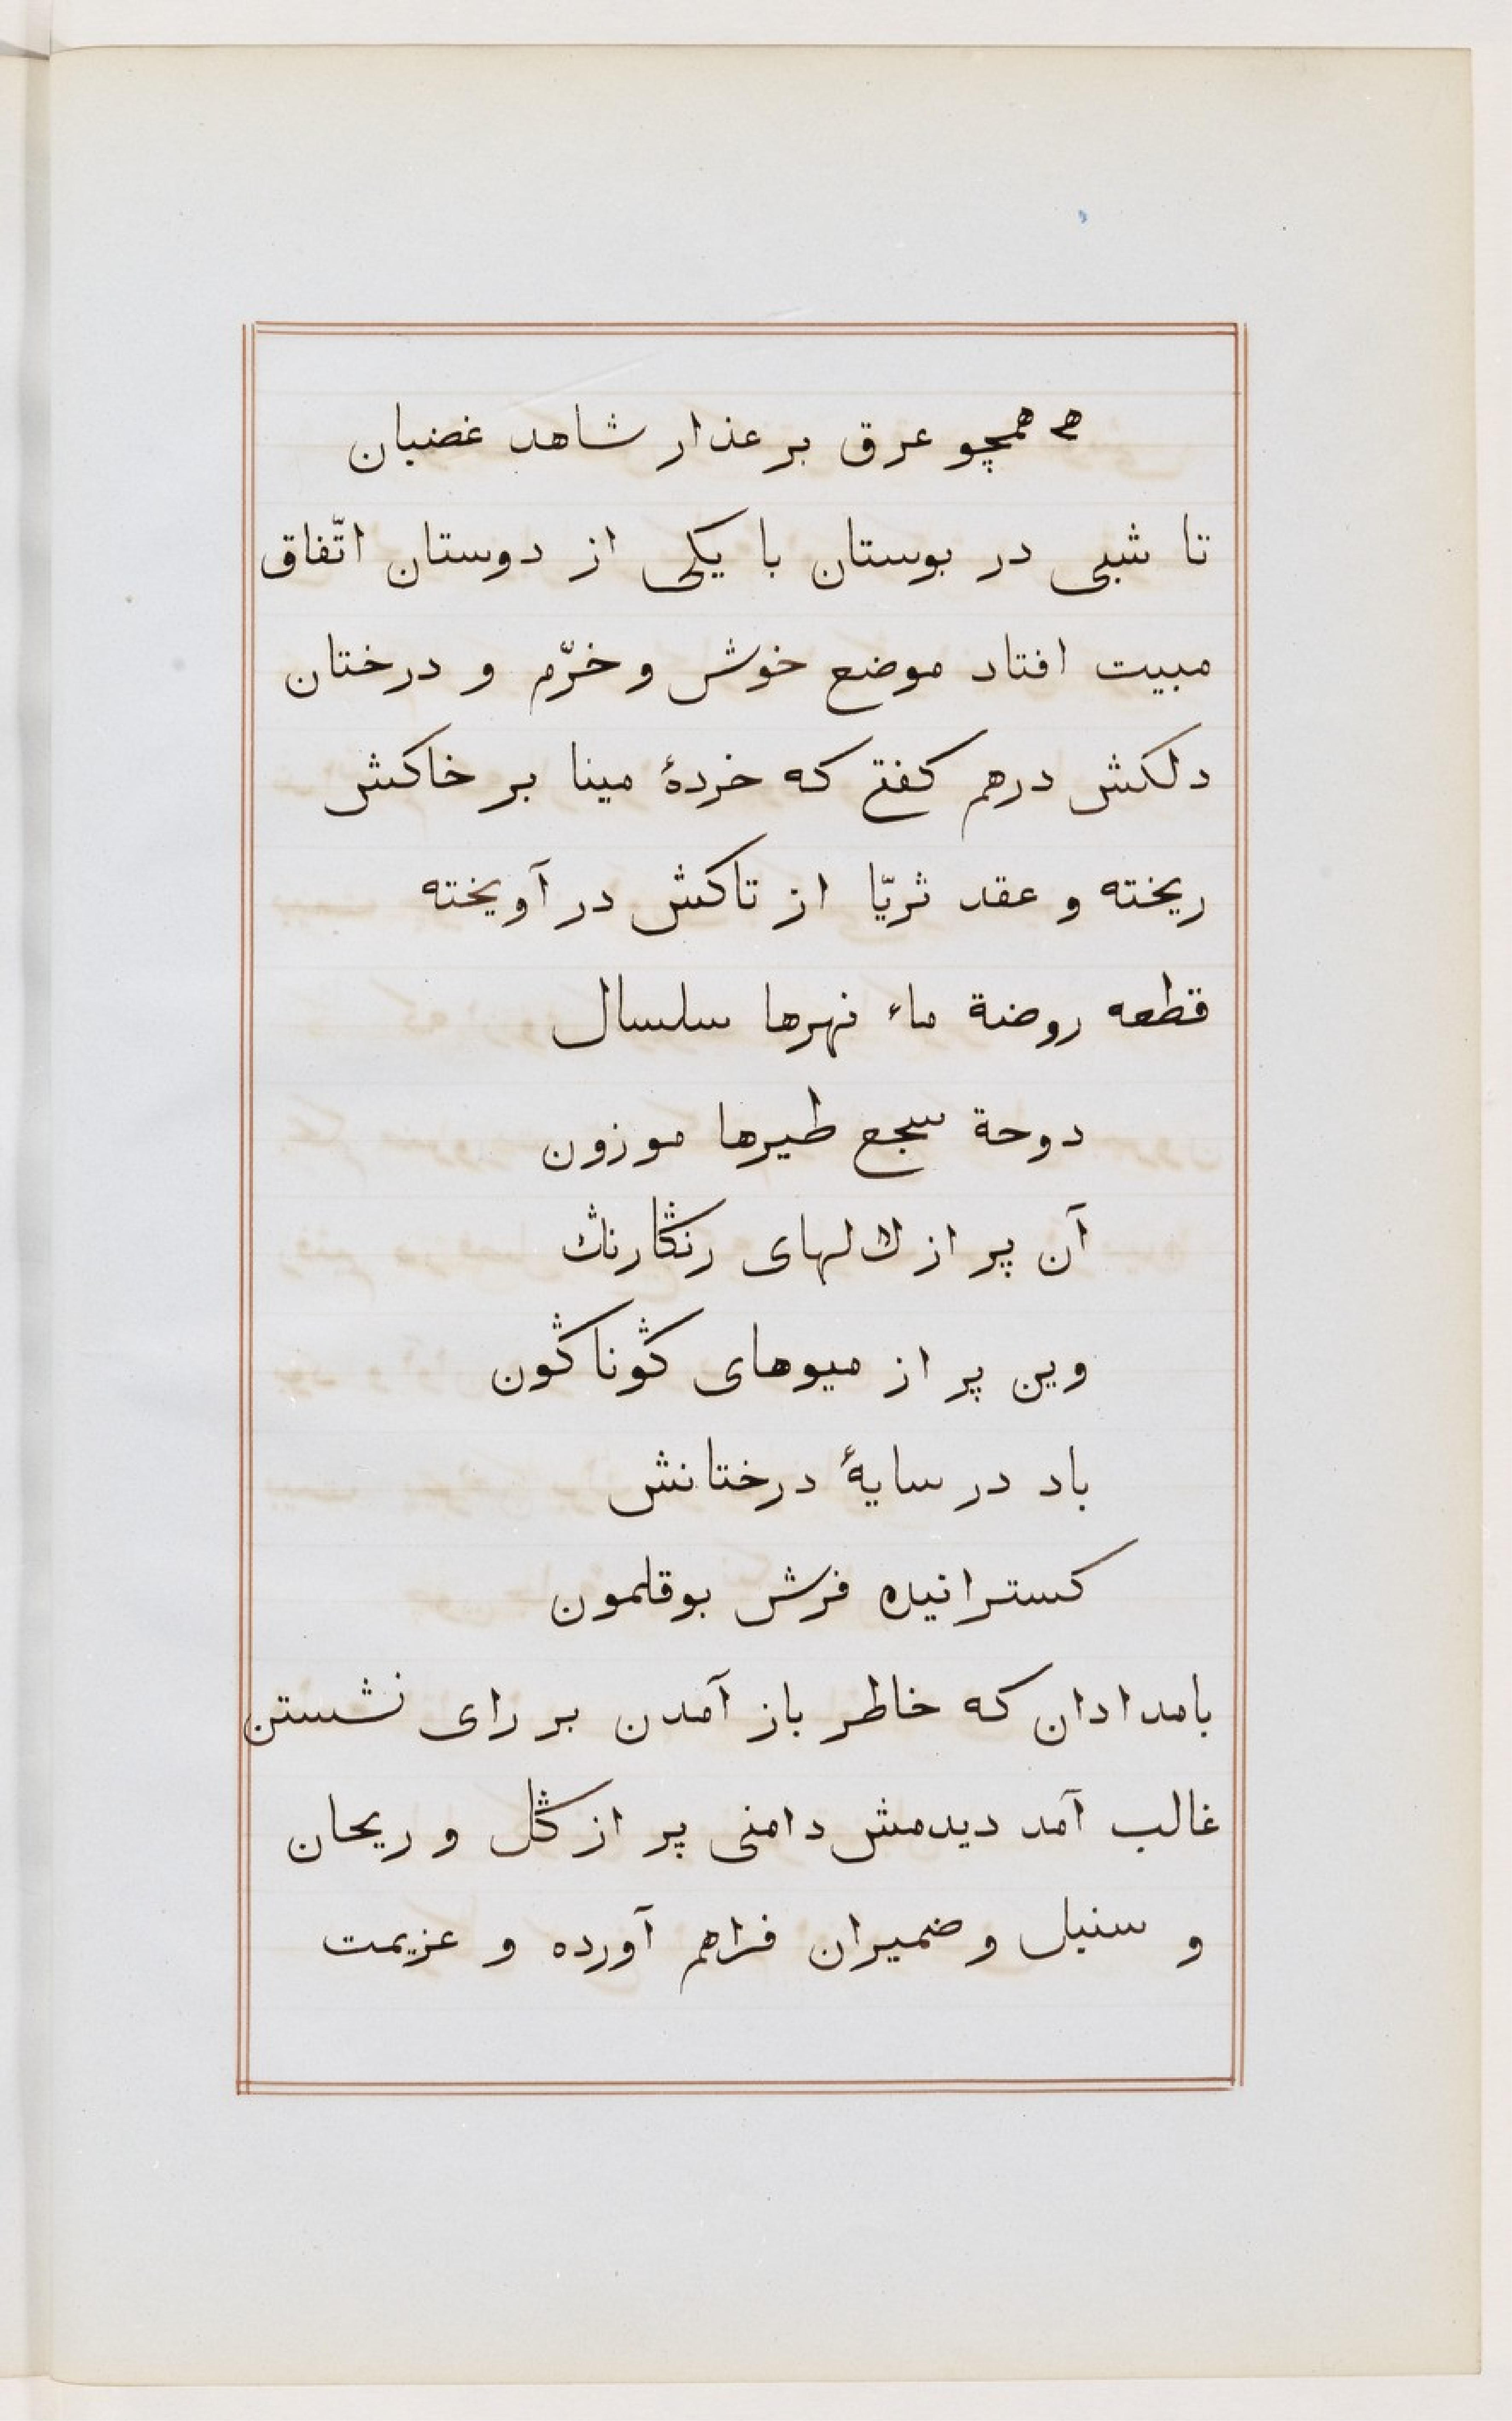 هی همچو عرق بر عذار شاهد غضبان
تا شبی در بوستان با یکی از دوستان اتّفاق
مبیت افتاد موضع خوش و خرّم و درختان
دلکش درهم کفتی که خردهٔ مینا بر خاکش
ریخته و عقد ثریّا از تاکش در آویخته
قطعه روضة ماء نهرها سلسال
دوحة سجع طیرها موزون
آن پر از لالهای رنگارنگ
وین پر از میوهای گوناگون
باد در سایهٔ درختانش
کسترانیده فرش بوقلمون
بامدادان که خاطر باز آمدن بر رای نشستن
غالب آمد دیدمش دامنی پر از گل و ریحان
و سنبل و ضمیران فراهم آورده و عزیمت